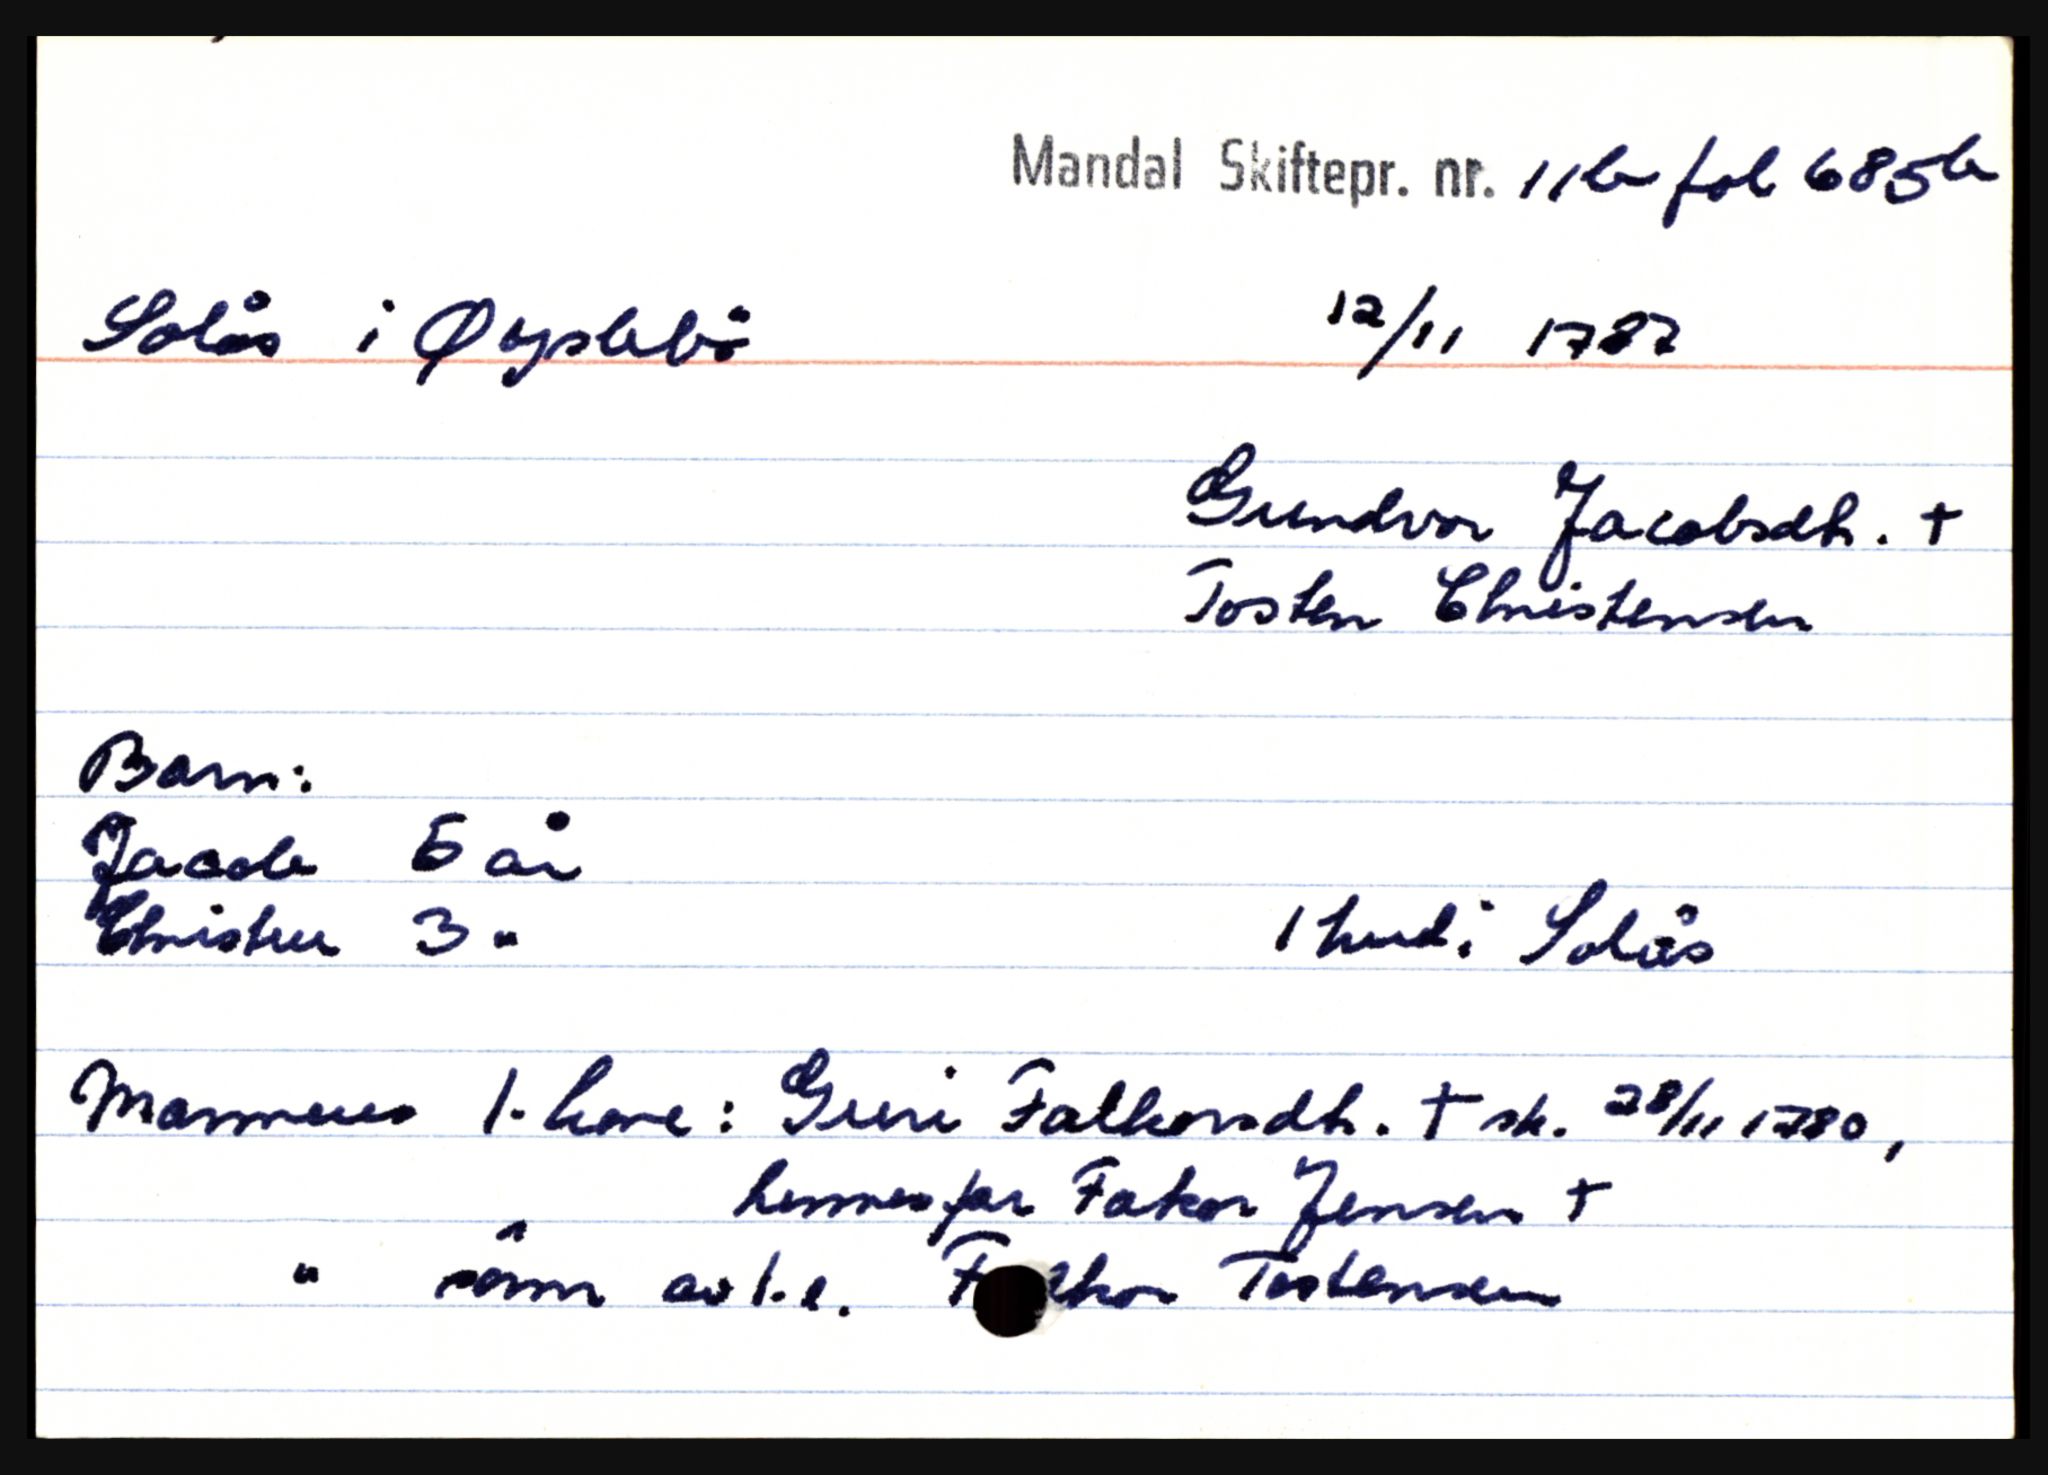 Mandal Skiftepr. nr. 11b fol 685b
Solås i Øyslebö 12/11 1787
Gundvor Jacobsdtr. †
Tosten Christensen
Barn:
Jacob 5 år
Christen 3 "
1 hud i Solås
Mannens 1. kone: Guri Falkorsdtr. † sk. 28/11 1780,
hennes far Fakor Jensen †
" sönn av 1.e. Falkor Tostensen